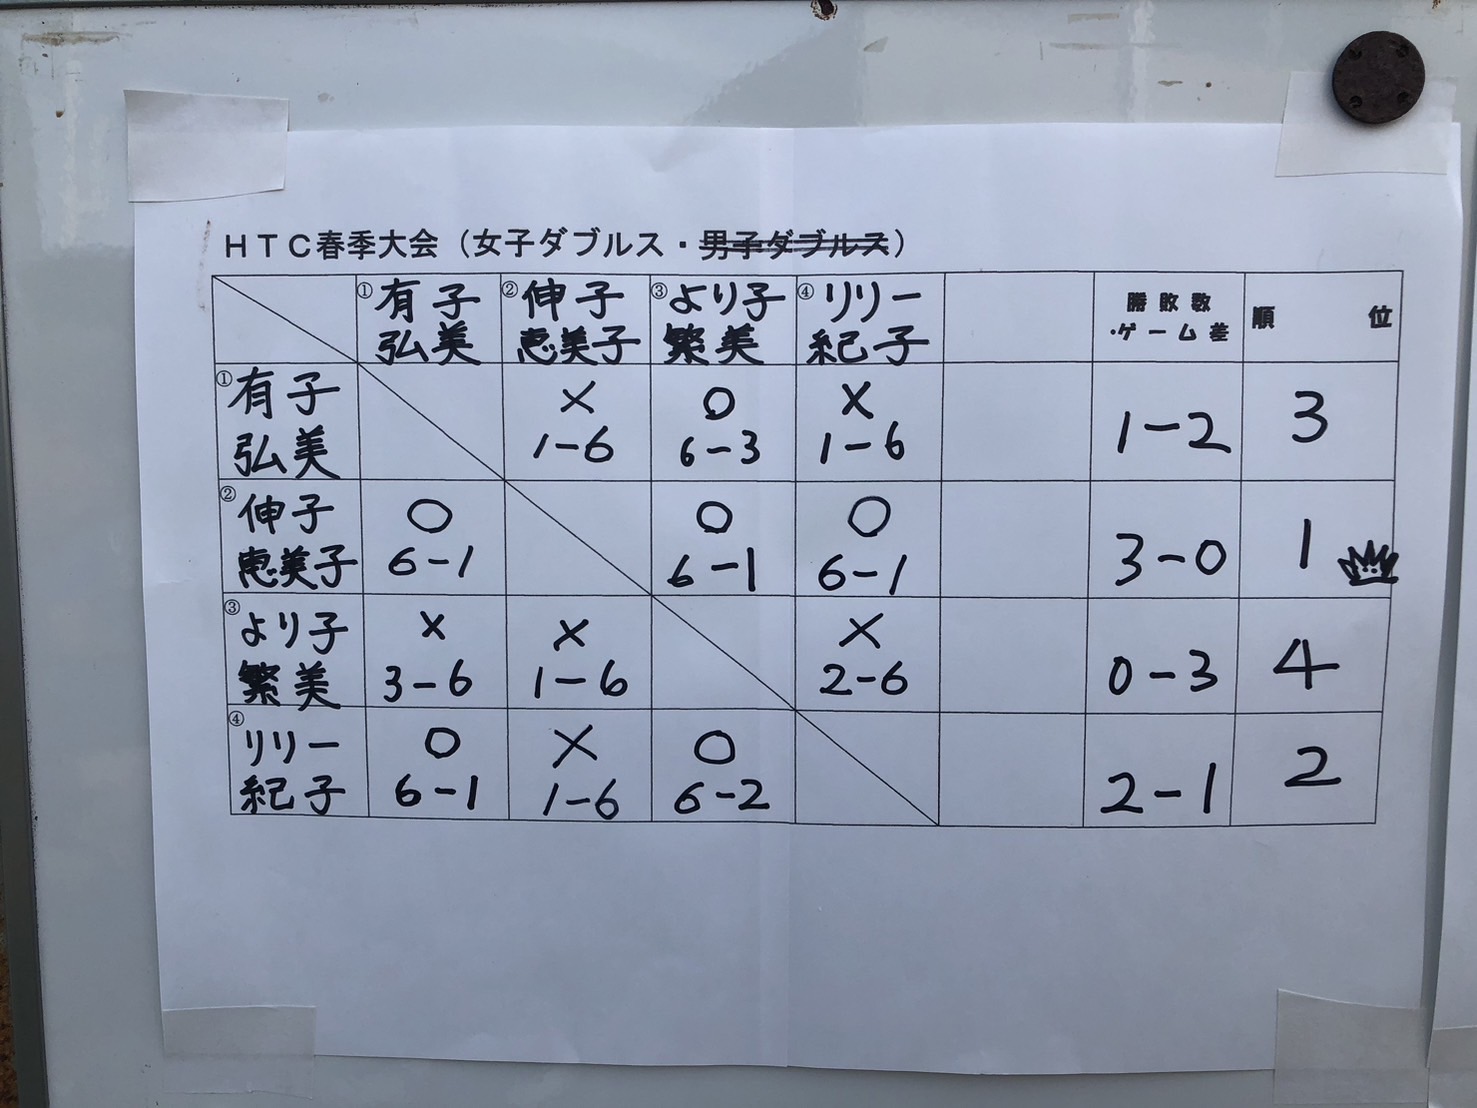 HTC春季大会（女子ダブルス・男子ダブルス）
①有子 ②伸子 ③より子 ④リリー 勝敗数 順位
弘美 恵美子 繁美 紀子 ・ゲーム差
①有子 × ○ × 1-2 3
弘美 1-6 6-3 1-6
②伸子 ○ ○ ○ 3-0 1
恵美子 6-1 6-1 6-1
③より子 × × × 0-3 4
繁美 3-6 1-6 2-6
④リリー ○ × ○ 2-1 2
紀子 6-1 1-6 6-2